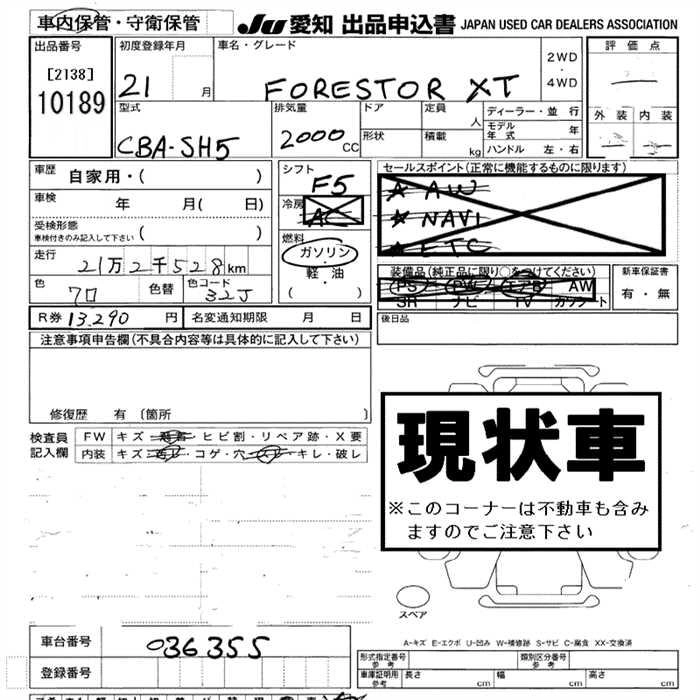 車内保管・守衛保管
JU 愛知 出品申込書 JAPAN USED CAR DEALERS ASSOCIATION
出品番号
[2138]
10189
初度登録年月
21 月
車名・グレード
FORESTOR XT
2WD
・
4WD
評価点
外装 内装
型式
CBA-SH5
排気量
2000 CC
ドア
形状
定員 人
積載 kg
ディーラー・並行
モデル年式 年
ハンドル 左・右
車歴 自家用・( )
車検 年 月( 日)
受検形態
車検付きのみ記入して下さい ( )
走行 21万2千528km
色 クロ 色替 色コード 32J
シフト F5
冷房 AC
燃料
ガソリン
・
軽油
( )
セールスポイント(正常に機能するものに限ります)
★ AW
★ NAVI
★ ETC
装備品(純正品に限り○をつけてください)
PS PW エアB AW
SR ナビ TV カワシート
新車保証書
有・無
R券 13,290 円 名変通知期限 月 日
後日品
注意事項申告欄(不具合内容等は具体的に記入して下さい)
修復歴 有〔箇所 〕
検査員記入欄
FW キズ ヒビ割・リペア跡・X要
内装 キズ コゲ・穴 キレ・破レ
現状車
※このコーナーは不動車も含み
ますのでご注意下さい
スペア
A-キズ E-エクボ U-凹み W-補修跡 S-サビ C-腐食 XX-交換済
車台番号 036355
登録番号
形式指定番号 参考 類別区分番号 参考
車庫証明用 参考 長さ cm 幅 cm 高さ cm